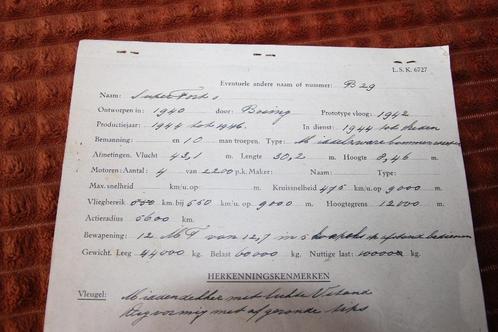 L.S.K. 6727
Eventuele andere naam of nummer: B 29
Naam: Super Forts
Ontworpen in: 1940 door: Boeing Prototype vloog: 1942
Productiejaar: 1944 tot 1946. In dienst: 1944 tot heden
Bemanning: en 10 man troepen. Type: Middelzware bommenwerper
Afmetingen. Vlucht 43,1 m. Lengte 30,2 m. Hoogte 8,46 m.
Motoren: Aantal: 4 van 2200 p.k. Maker: Naam: Type:
Max. snelheid km/u. op m. Kruissnelheid 475 km/u. op 9000 m.
Vliegbereik km. bij 550 km/u. op 9000 m. Hoogtegrens 12000 m.
Actieradius 6600 km.
Bewapening: 12 MT van 12,7 in 5 op afstand bedienen
Gewicht. Leeg 44000 kg. Belast 60000 kg. Nuttige last: kg.
HERKENNINGSKENMERKEN
Vleugel: Middendekker met lichte V stand
met afgeronde tips